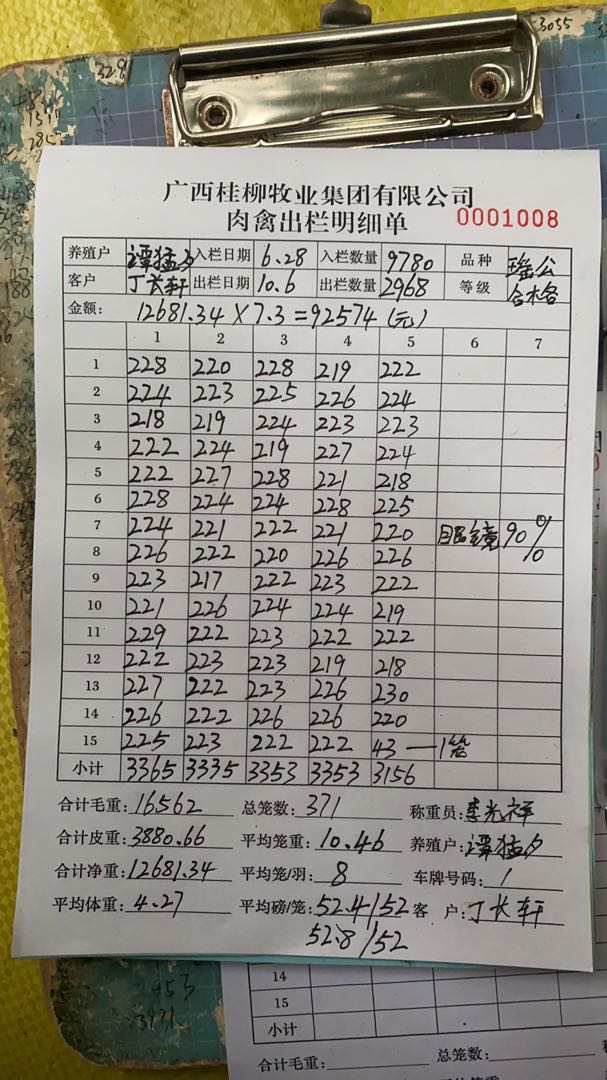 3055
3281
广西桂柳牧业集团有限公司
肉禽出栏明细单 0001008
养殖户 谭猛夕 入栏日期 6.28 入栏数量 9780 品种 瑶公
客户 丁长轩 出栏日期 10.6 出栏数量 2968 等级 合格
金额: 12681.34 × 7.3 = 92574 (元)
1 2 3 4 5 6 7
1 228 220 228 219 222
2 224 223 225 226 224
3 218 219 224 223 223
4 222 224 219 227 224
5 222 227 228 221 218
6 228 224 224 228 225
7 224 221 222 221 220 眼镜 90%
8 226 222 220 226 226
9 223 217 222 223 222
10 221 226 224 224 219
11 229 222 223 222 222
12 222 223 223 219 218
13 227 222 223 226 230
14 226 222 226 226 220
15 225 223 222 222 43 — 1笼
小计 3365 3335 3353 3353 3156
合计毛重: 16562 总笼数: 371 称重员: 李光祥
合计皮重: 3880.66 平均笼重: 10.46 养殖户: 谭猛夕
合计净重: 12681.34 平均笼/羽: 8 车牌号码: /
平均体重: 4.27 平均磅/笼: 52.4/52 客 户: 丁长轩
52.8/52
14
15
小计
合计毛重: 总笼数: